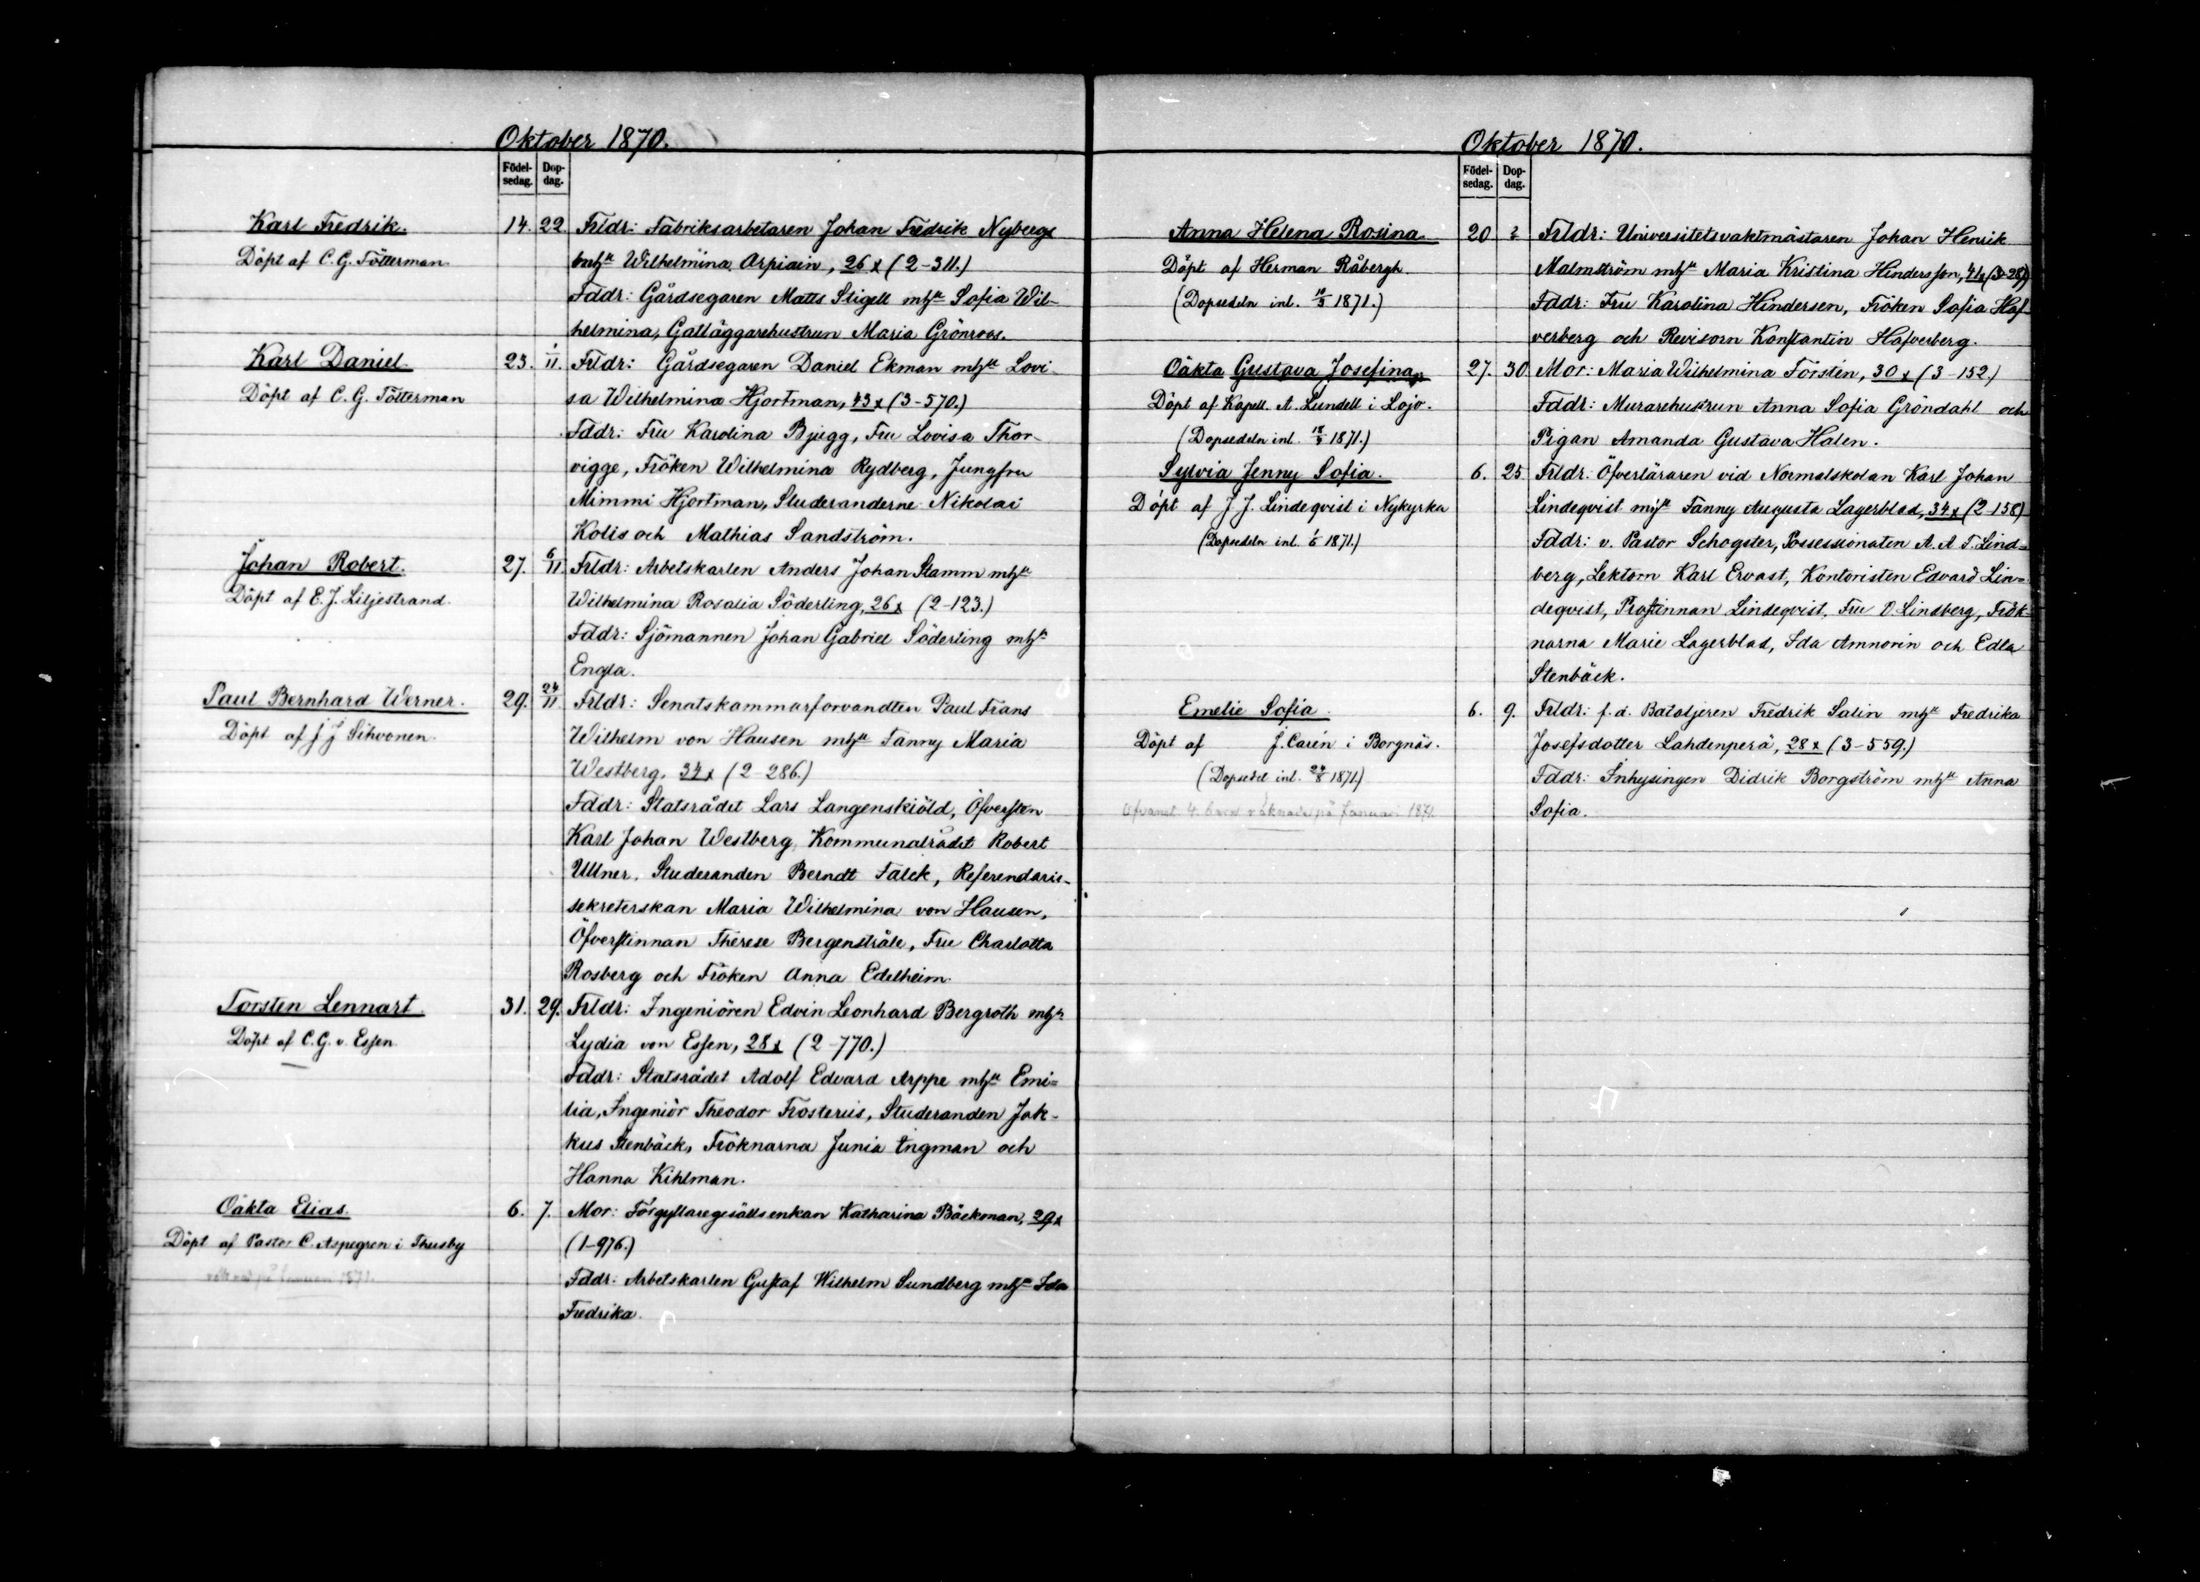 Oktober 1870.
Födel-
sedag.
Dop-
dag.
Karl Fredrik.
Döpt af C. G. Tötterman.
14. 22. Frldr: Fabriksarbetaren Johan Fredrik Nyberg
mhu Wilhelmina Arpiain, 26 x (2-311.)
Fddr: Gårdsegaren Matts Stigell mhu Sofia Wil-
helmina, Gatläggarehustrun Maria Grönroos.
Karl Daniel.
Döpt af C. G. Tötterman
23. 1/11. Frldr: Gårdsegaren Daniel Ekman mhu Lovi-
sa Wilhelmina Hjortman, 43 x (3-570.)
Fddr: Fru Karolina Bjugg, Fru Lovisa Thor-
vigge, Fröken Wilhelmina Rydberg, Jungfru
Mimmi Hjortman, Studeranderne Nikolai
Kolis och Mathias Sandström.
Johan Robert.
Döpt af E. J. Liljestrand.
27. 6/11 Frldr: Arbetskarlen Anders Johan Stamm mhu
Wilhelmina Rosalia Söderling, 26 x (2-123.)
Fddr: Sjömannen Johan Gabriel Söderling mhu
Engla.
Paul Bernhard Werner.
Döpt af J J Sihvonen.
29. 24/11 Frldr: Senatskammarforvandten Paul Frans
Wilhelm von Hausen mhu Fanny Maria
Westberg, 34 x (2-286.)
Fddr: Statsrådet Lars Langenskiöld, Öfversten
Karl Johan Westberg, Kommunalrådet Robert
Ullner, Studeranden Berndt Falck, Referendarie-
sekreterskan Maria Wilhelmina von Hausen,
Öfverstinnan Therese Bergenstråle, Fru Charlotta
Rosberg och Fröken Anna Edelheim.
Torsten Lennart.
Döpt af C. G. v. Essen.
31. 29. Frldr: Ingeniören Edvin Leonhard Bergroth mhu
Lydia von Essen, 28 x (2-770.)
Fddr: Statsrådet Adolf Edvard Arppe mhu Emi=
lia, Ingeniör Theodor Frosterus, Studeranden Jak-
kus Stenbäck, Fröknarna Junia Ingman och
Hanna Kihlman.
Oäkta Elias.
Döpt af Pastor C. Aspegren i Thusby
på Januari 1871.
6. 7. Mor: Förgyllaregesällsenkan Katharina Bäckman, 29 x
(1-976.)
Fddr: Arbetskarlen Gustaf Wilhelm Sundberg mhu Ida
Fredrika.
Oktober 1870.
Födel-
sedag.
Dop-
dag.
Anna Helena Rosina.
Döpt af Herman Råbergh
(Dopsedeln inl. 1871.)
20 ? Frldr: Universitetsvaktmästaren Johan Henrik
Malmström mhu Maria Kristina Hindersson, 41 x (3-281)
Fddr: Fru Karolina Hindersen, Fröken Sofia Haf-
verberg och Revisorn Konstantin Hafverberg.
Oäkta Gustava Josefina,
Döpt af Kapell. A. Lundell i Lojo.
(Dopsedeln inl. 1871.)
27. 30 Mor: Maria Wilhelmina Forstén, 30 x (3-152.)
Fddr: Murarehustrun Anna Sofia Gröndahl och
Pigan Amanda Gustava Halen.
Sylvia Jenny Sofia.
Döpt af J J. Lindeqvist i Nykyrka
(Dopsedeln inl. 1/6 1871.)
6. 25 Frldr: Öfverläraren vid Normalskolan Karl Johan
Lindeqvist mhu Fanny Augusta Lagerblad, 34 x (2-158)
Fddr: v. Pastor Schogster, Possessionaten A. A T. Lind=
berg, Lektorn Karl Ervast, Kontoristen Edvard Lin=
deqvist, Prostinnan Lindeqvist, Fru O. Lindberg, Frök-
narna Marie Lagerblad, Ida Amnorin och Edla
Stenbäck.
Emelie Sofia.
Döpt af J. Carén i Borgnäs.
(Dopsedel inl. 24/8 1871.)
Ofvannt. 4 barn räknade på Januari 1871.
6. 9. Frldr: f. d. Bataljeren Fredrik Salin mhu Fredrika
Josefsdotter Lahdenperä, 28 x (3-559.)
Fddr: Inhysingen Didrik Borgström mhu Anna
Sofia.